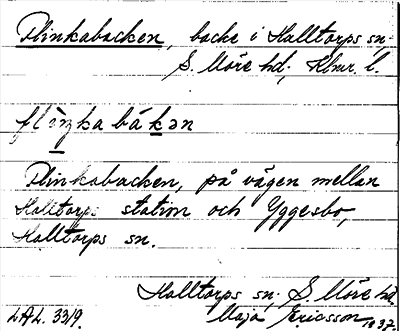 Plinkabacken, backe i Halltorps sn;
S. Möre hd; Klmr. l.
Plinkabacken, på vägen mellan
Halltorps station och Yggesbo,
Halltorps sn.
Halltorps sn; S. Möre hd.
LAL. 3319. Maja Ericsson 1937.